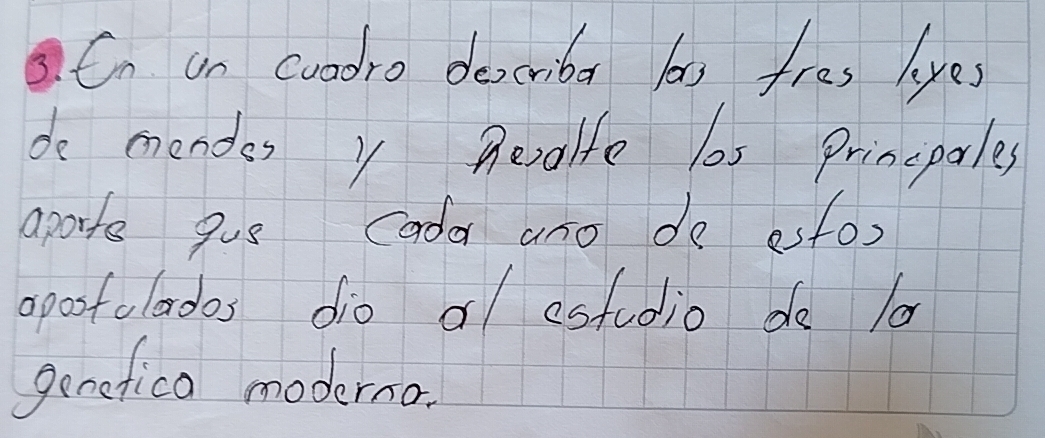 3. En un cuadro describa las tres leyes
de mendes y Resalte los Principales
aporte que cada uno de estos
apostulados dio al estudio de la
genetica moderna.